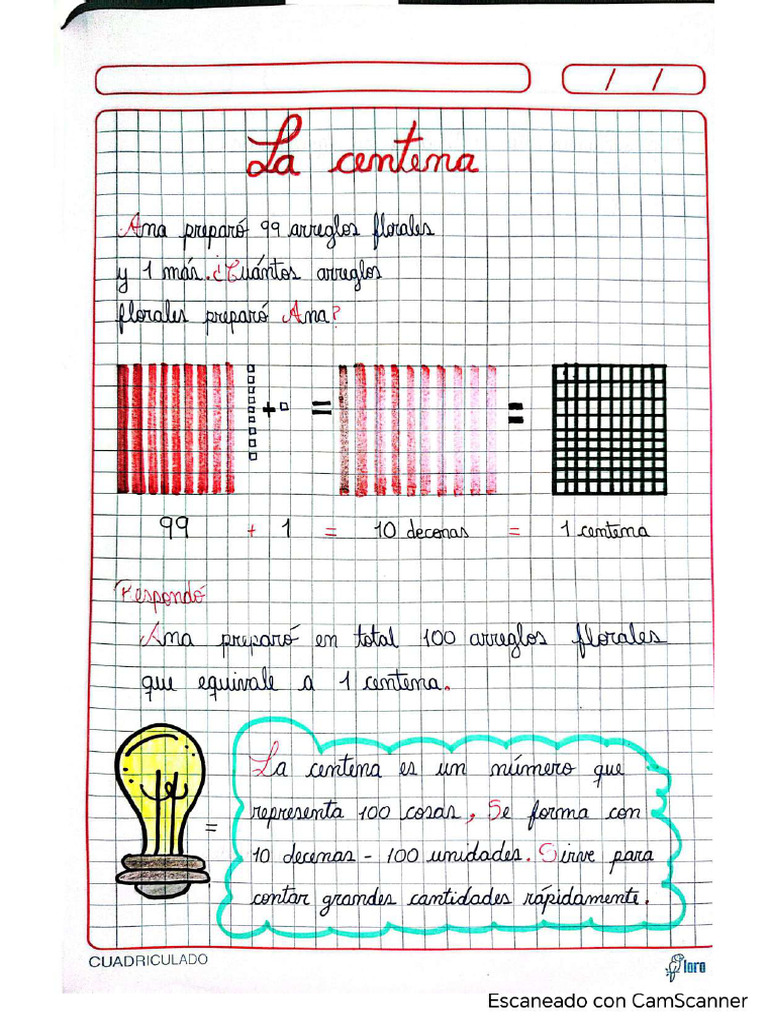 / /
La centena
Ana preparó 99 arreglos florales
y 1 más. ¿Cuántos arreglos
florales preparó Ana?
+ = =
99 + 1 = 10 deconas = 1 centena
Respondó
Ana preparó en total 100 arreglos florales
que equivale a 1 centena.
=
La centena es un número que
representa 100 cosas, Se forma con
10 decenas - 100 unidades. Sirve para
contar grandes cantidades rápidamente.
CUADRICULADO
loro
Escaneado con CamScanner